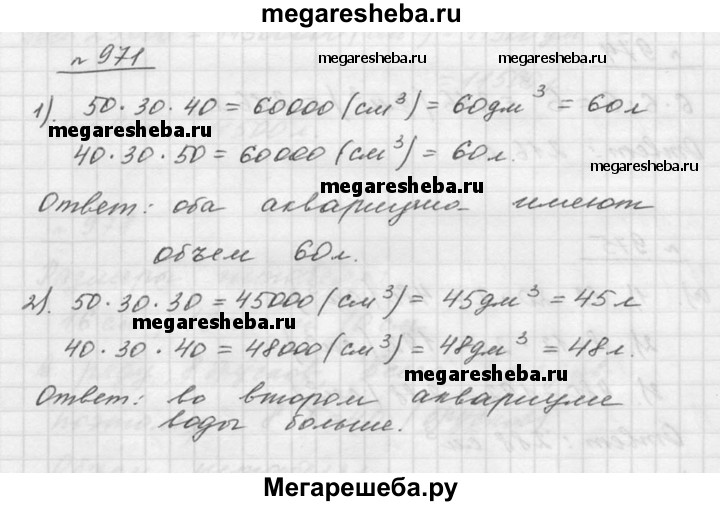 megaresheba.ru
№ 971
megaresheba.ru
1). 50 · 30 · 40 = 60000 (см³) = 60дм³ = 60л
megaresheba.ru
40 · 30 · 50 = 60000 (см³) = 60л.
megaresheba.ru
megaresheba.ru
Ответ: оба аквариума имеют
объем 60л.
2). 50 · 30 · 30 = 45000 (см³) = 45дм³ = 45л
megaresheba.ru
40 · 30 · 40 = 48000 (см³) = 48дм³ = 48л.
megaresheba.ru
Ответ: во втором аквариуме
воды больше.
Мегарешеба.ру